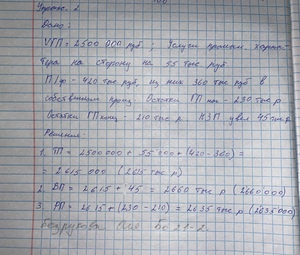 Упражн. 2
Дано:
VГП = 2500 000 руб; Услуги промыш. харак-
тера на сторону на 55 тыс руб
П/ф - 420 тыс руб, из них 360 тыс руб в
собственным произ. Остатки ГП нач - 230 тыс р
Остатки ГП конц - 210 тыс р. НЗП увел 45 тыс р
Решение:
1. ТП = 2500000 + 55 000 + (420-360) =
= 2 615 000 (2615 тыс р)
2. ВП = 2615 + 45 = 2660 тыс р (2660000)
3. РП = 2615 + (230 - 210) = 2635 тыс р (2635000)
Безрукова Оля Бо 21-2